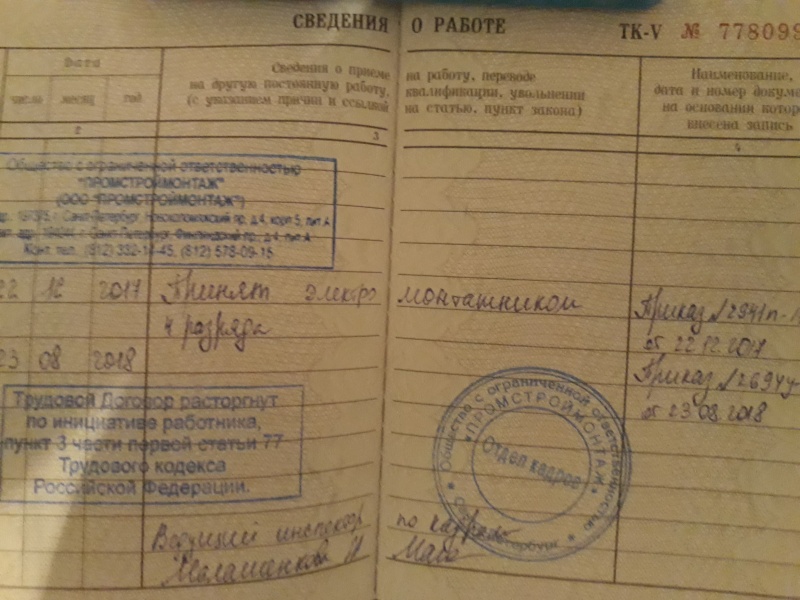 СВЕДЕНИЯ О РАБОТЕ
ТК-V № 778099
Дата
число месяц год
Сведения о приеме на работу, переводе
на другую постоянную работу, квалификации, увольнении
(с указанием причин и ссылкой на статью, пункт закона)
Наименование,
дата и номер докуме
на основании котор
внесена запись
2 3 4
Общество с ограниченной ответственностью
"ПРОМСТРОЙМОНТАЖ"
(ООО "ПРОМСТРОЙМОНТАЖ")
г. Санкт-Петербург, Новоколомяжский пр., д.4, корп.5, лит.А
г. Санкт-Петербург, Финляндский пр., д.4, лит.А
Конт. тел. (812) 332-14-45, (812) 578-09-15
22 12 2017 Принят электромонтажником
4 разряда
Приказ №2941п-
от 22.12.2017
23 08 2018
Приказ №2694у
от 23.08.2018
Трудовой Договор расторгнут
по инициативе работника,
пункт 3 части первой статьи 77
Трудового кодекса
Российской Федерации.
Общество с ограниченной ответственностью
"ПРОМСТРОЙМОНТАЖ"
Отдел кадров
Ведущий инспектор по кадрам